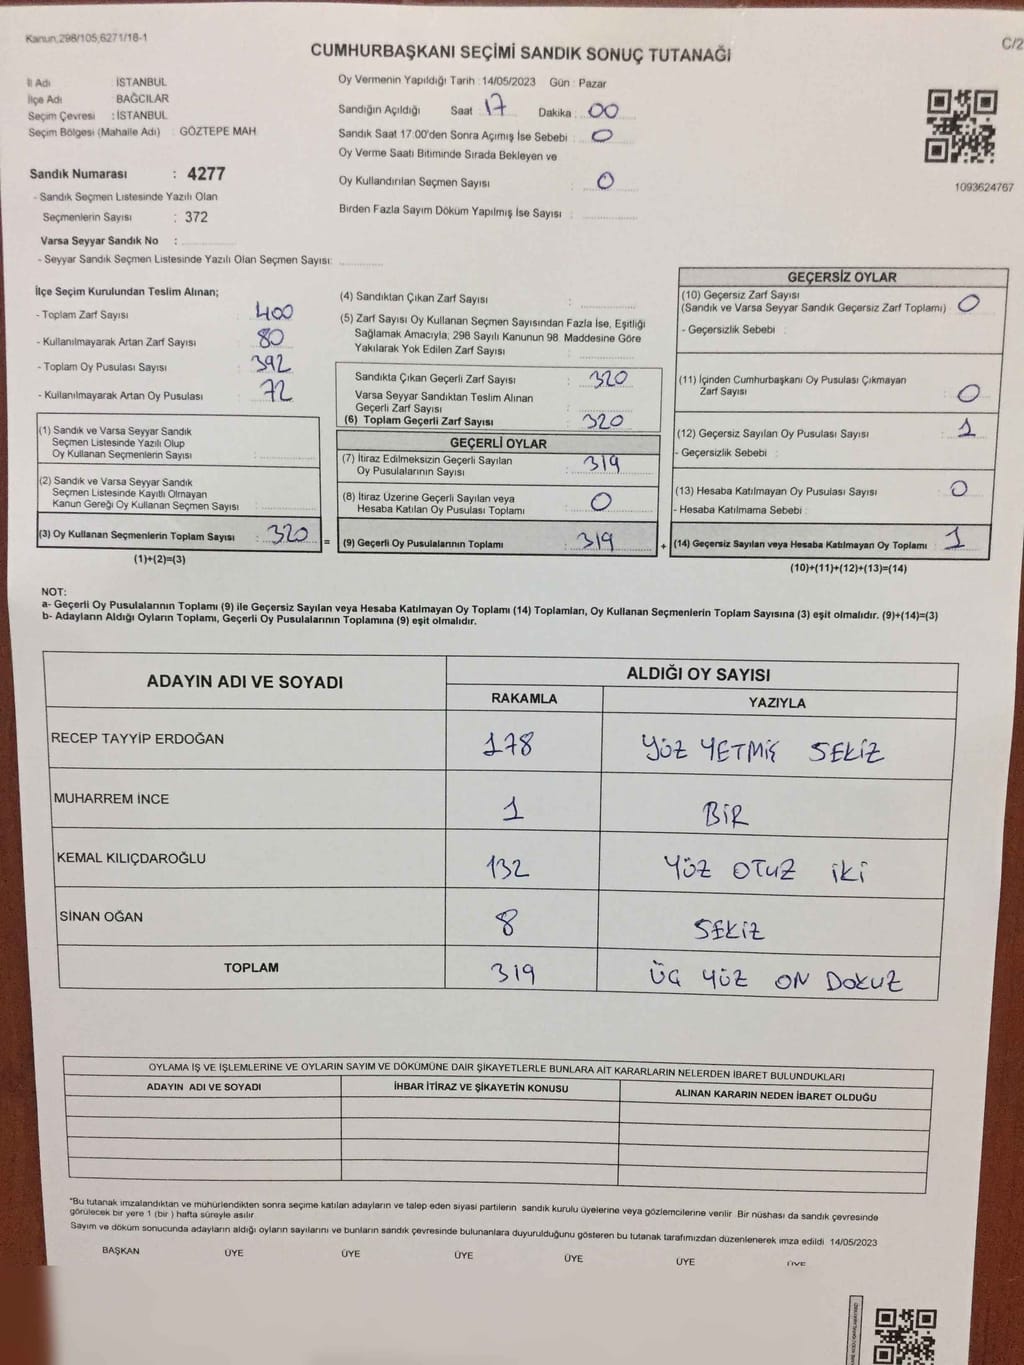 Kanun,298/105,6271/18-1
C/2
CUMHURBAŞKANI SEÇİMİ SANDIK SONUÇ TUTANAĞI
İl Adı İSTANBUL
İlçe Adı BAĞCILAR
Seçim Çevresi : İSTANBUL
Seçim Bölgesi (Mahalle Adı) : GÖZTEPE MAH
Oy Vermenin Yapıldığı Tarih : 14/05/2023 Gün : Pazar
Sandığın Açıldığı Saat 17 Dakika : 00
Sandık Saat 17:00'den Sonra Açımış İse Sebebi : 0
Oy Verme Saati Bitiminde Sırada Bekleyen ve
Oy Kullandırılan Seçmen Sayısı : 0
Birden Fazla Sayım Döküm Yapılmış İse Sayısı :
1093624767
Sandık Numarası : 4277
- Sandık Seçmen Listesinde Yazılı Olan
Seçmenlerin Sayısı : 372
Varsa Seyyar Sandık No :
- Seyyar Sandık Seçmen Listesinde Yazılı Olan Seçmen Sayısı:
İlçe Seçim Kurulundan Teslim Alınan;
- Toplam Zarf Sayısı : 400
- Kullanılmayarak Artan Zarf Sayısı : 80
- Toplam Oy Pusulası Sayısı : 392
- Kullanılmayarak Artan Oy Pusulası : 72
(1) Sandık ve Varsa Seyyar Sandık
Seçmen Listesinde Yazılı Olup
Oy Kullanan Seçmenlerin Sayısı :
(2) Sandık ve Varsa Seyyar Sandık
Seçmen Listesinde Kayıtlı Olmayan
Kanun Gereği Oy Kullanan Seçmen Sayısı :
(3) Oy Kullanan Seçmenlerin Toplam Sayısı : 320
(1)+(2)=(3)
=
(4) Sandıktan Çıkan Zarf Sayısı :
(5) Zarf Sayısı Oy Kullanan Seçmen Sayısından Fazla İse, Eşitliği
Sağlamak Amacıyla, 298 Sayılı Kanunun 98 Maddesine Göre
Yakılarak Yok Edilen Zarf Sayısı :
Sandıkta Çıkan Geçerli Zarf Sayısı : 320
Varsa Seyyar Sandıktan Teslim Alınan
Geçerli Zarf Sayısı :
(6) Toplam Geçerli Zarf Sayısı : 320
GEÇERLİ OYLAR
(7) İtiraz Edilmeksizin Geçerli Sayılan
Oy Pusulalarının Sayısı : 319
(8) İtiraz Üzerine Geçerli Sayılan veya
Hesaba Katılan Oy Pusulası Toplamı : 0
(9) Geçerli Oy Pusulalarının Toplamı : 319
+
GEÇERSİZ OYLAR
(10) Geçersiz Zarf Sayısı
(Sandık ve Varsa Seyyar Sandık Geçersiz Zarf Toplamı) : 0
- Geçersizlik Sebebi :
(11) İçinden Cumhurbaşkanı Oy Pusulası Çıkmayan
Zarf Sayısı : 0
(12) Geçersiz Sayılan Oy Pusulası Sayısı : 1
- Geçersizlik Sebebi :
(13) Hesaba Katılmayan Oy Pusulası Sayısı : 0
- Hesaba Katılmama Sebebi :
(14) Geçersiz Sayılan veya Hesaba Katılmayan Oy Toplamı : 1
(10)+(11)+(12)+(13)=(14)
NOT:
a- Geçerli Oy Pusulalarının Toplamı (9) ile Geçersiz Sayılan veya Hesaba Katılmayan Oy Toplamı (14) Toplamları, Oy Kullanan Seçmenlerin Toplam Sayısına (3) eşit olmalıdır. (9)+(14)=(3)
b- Adayların Aldığı Oyların Toplamı, Geçerli Oy Pusulalarının Toplamına (9) eşit olmalıdır.
ADAYIN ADI VE SOYADI ALDIĞI OY SAYISI
RAKAMLA YAZIYLA
RECEP TAYYİP ERDOĞAN 178 YÜZ YETMİŞ SEKİZ
MUHARREM İNCE 1 BİR
KEMAL KILIÇDAROĞLU 132 YÜZ OTUZ İKİ
SİNAN OĞAN 8 SEKİZ
TOPLAM 319 ÜÇ YÜZ ON DOKUZ
OYLAMA İŞ VE İŞLEMLERİNE VE OYLARIN SAYIM VE DÖKÜMÜNE DAİR ŞİKAYETLERLE BUNLARA AİT KARARLARIN NELERDEN İBARET BULUNDUKLARI
ADAYIN ADI VE SOYADI İHBAR İTİRAZ VE ŞİKAYETİN KONUSU ALINAN KARARIN NEDEN İBARET OLDUĞU
"Bu tutanak imzalandıktan ve mühürlendikten sonra seçime katılan adayların ve talep eden siyasi partilerin sandık kurulu üyelerine veya gözlemcilerine verilir Bir nüshası da sandık çevresinde
görülecek bir yere 1 (bir ) hafta süreyle asılır
Sayım ve döküm sonucunda adayların aldığı oyların sayılarını ve bunların sandık çevresinde bulunanlara duyurulduğunu gösteren bu tutanak tarafımızdan düzenlenerek imza edildi 14/05/2023
BAŞKAN ÜYE ÜYE ÜYE ÜYE ÜYE ÜYE